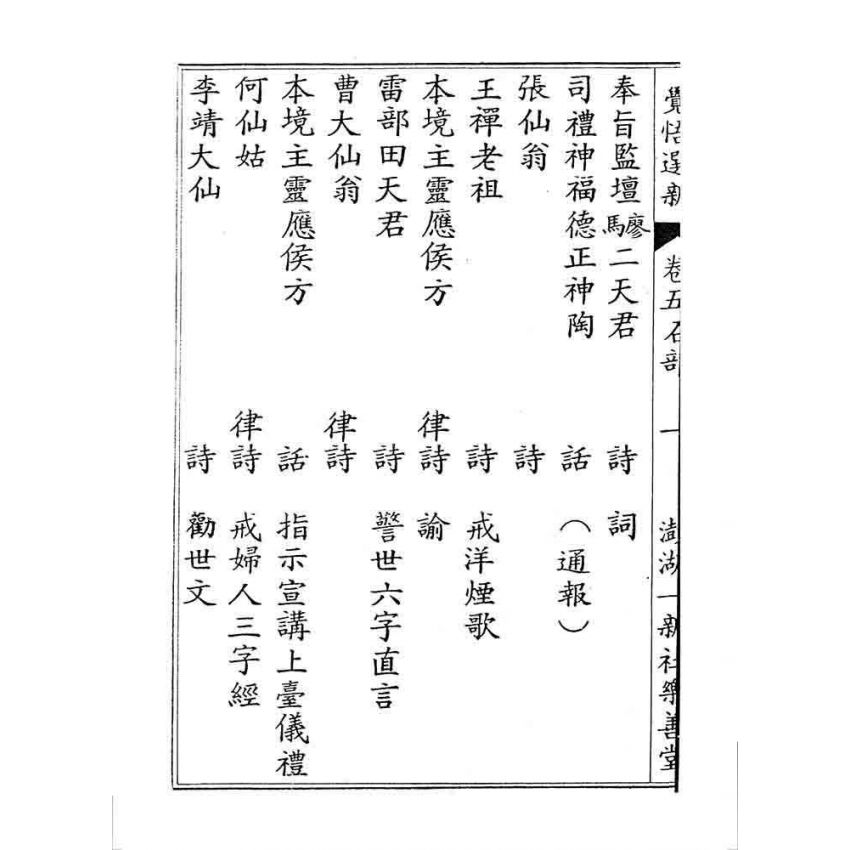 覺悟選新 卷五石部 一 澎湖一新社樂善堂
奉旨監壇廖馬二天君 詩 詞
司禮神福德正神陶 話 （通報）
張仙翁 詩
王禪老祖 詩 戒洋煙歌
本境主靈應侯方 律詩 諭
雷部田天君 詩 警世六字直言
曹大仙翁 律詩
本境主靈應侯方 話 指示宣講上臺儀禮
何仙姑 律詩 戒婦人三字經
李靖大仙 詩 勸世文